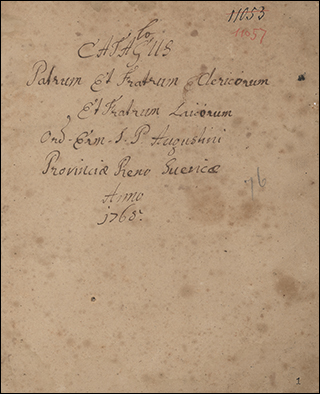 11053
11057
CATAlogUS
Patrum Et Fratrum Clericorum
Et Fratrum Laicorum
Ord. Erem. S. P. Augustini
Provinciæ Rheno Suevicæ
Anno
1765.
76
1